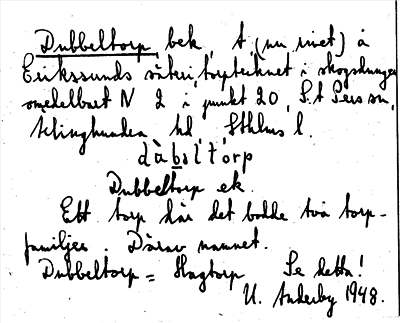 Dubbeltorp bek, t. (nu rivet) å
Erikssunds säteri, torptecknet i skogsdungen
omedelbart N 2 i punkt 20, S:t Pers sn,
Ärlinghundra hd Sthlms l.
dàbəltɔrp
Dubbeltorp ek.
Ett torp där det bodde två torp-
familjer. Därav namnet.
Dubbeltorp = Hagtorp Se detta!
U. Anderby 1948.